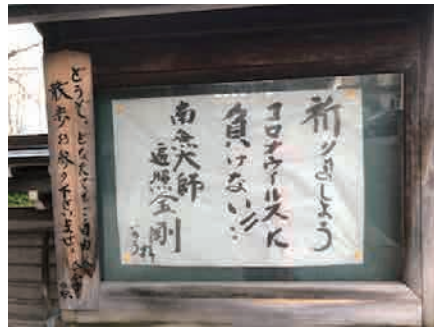 祈りましょう
コロナウィルスに
負けない!!
南無大師
遍照金剛
どうぞ、どなたでもご自由に
散歩お参り下さいませ